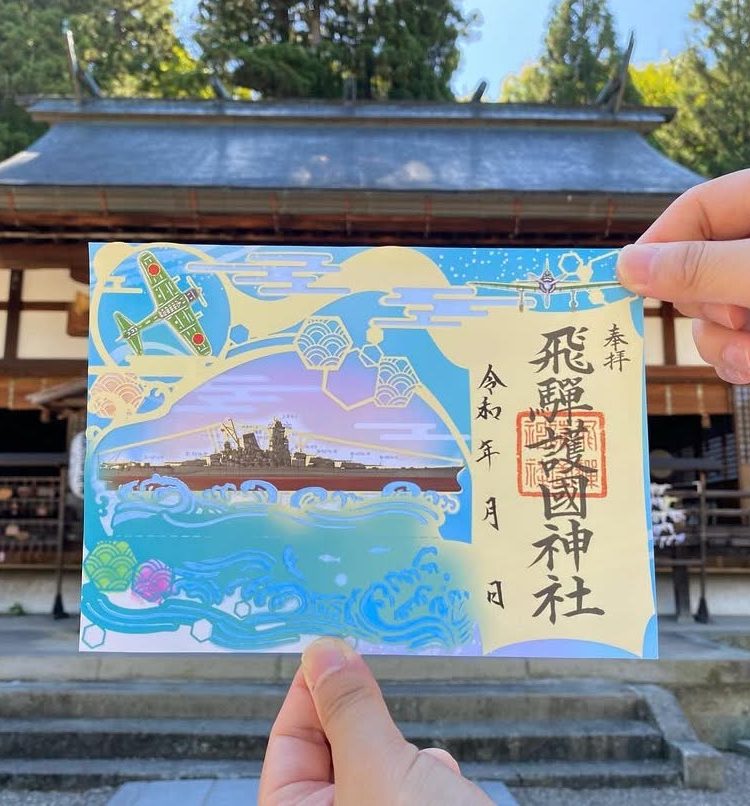 奉拝
飛騨護國神社
令和 年 月 日